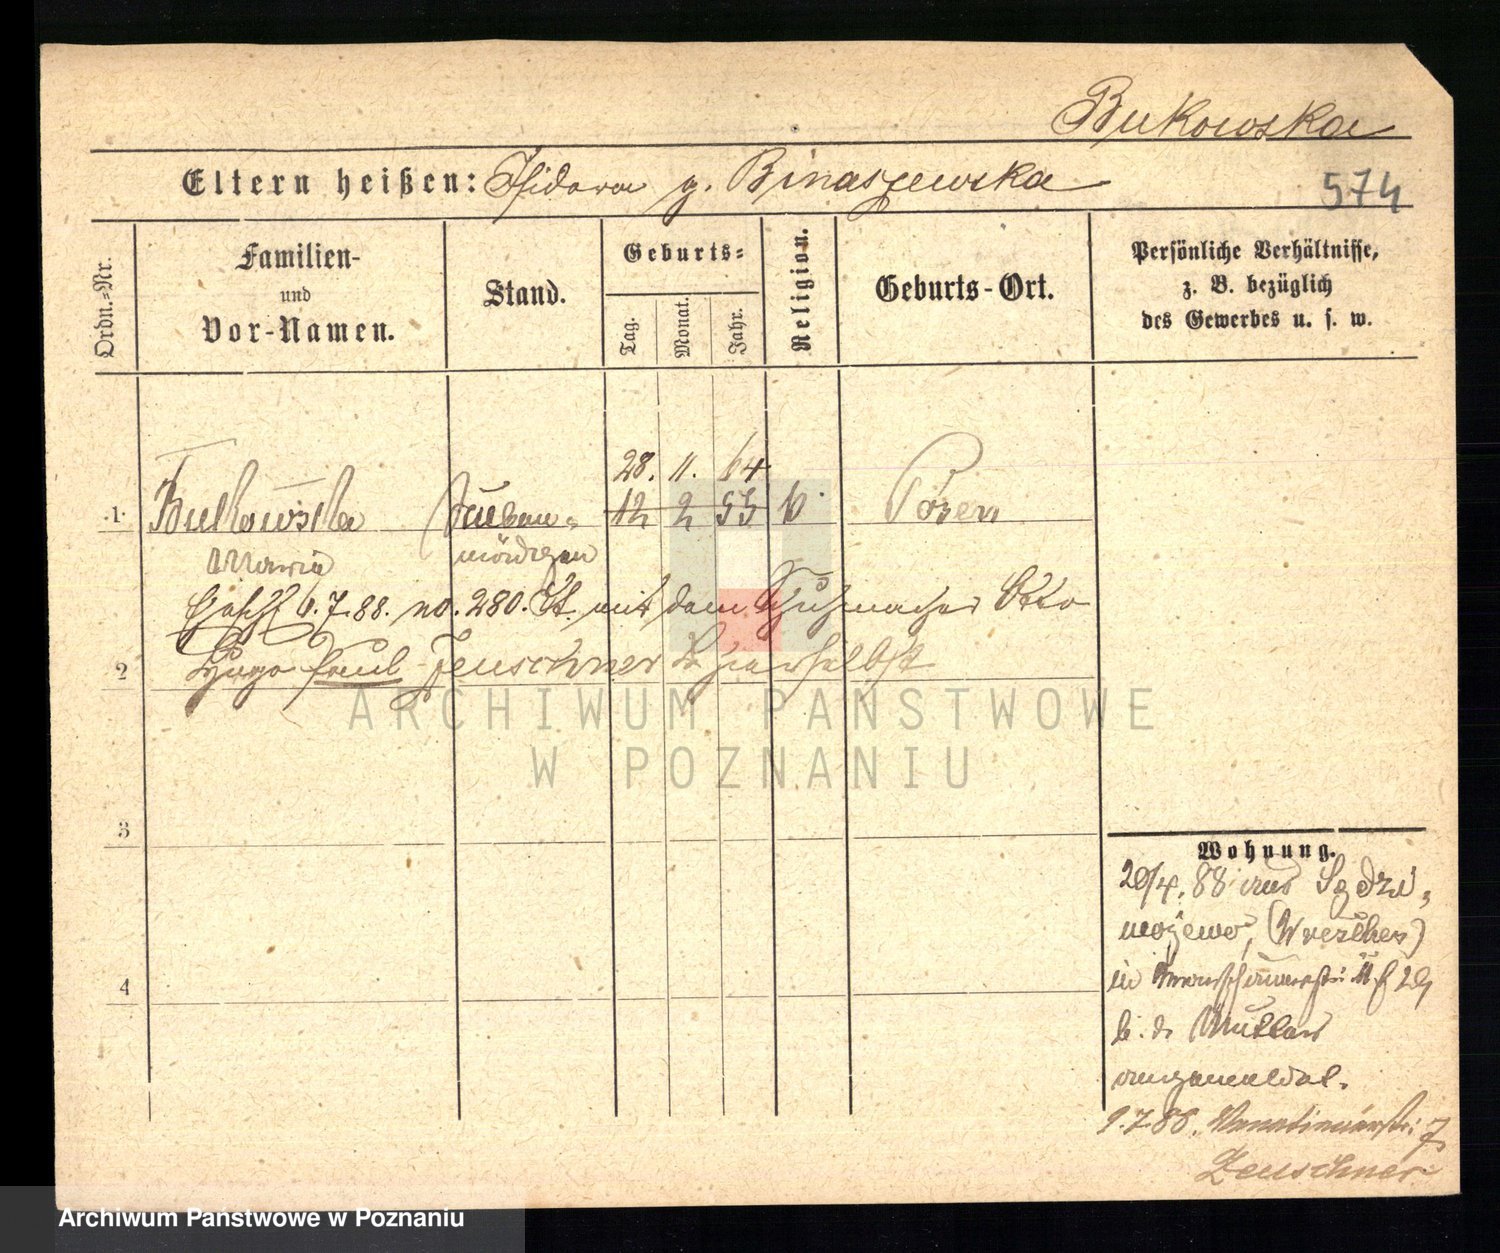 Bukowska
Eltern heißen: Isidora g. Binaszewska
574
Ordn.=Nr.
Familien-
und
Vor-Namen.
Stand.
Geburts=
Tag.
Monat.
Jahr.
Religion.
Geburts-Ort.
Persönliche Verhältnisse,
z. B. bezüglich
des Gewerbes u. s. w.
28. 11. 64
1 Bukowska Stuben= 12 2 55 k Posen
Maria mädchen
6.7.88. no. 280. St. mit dem Schuhmacher Otto
2 Hugo Paul Zeuschner hierselbst
ARCHIWUM PAŃSTWOWE
W POZNANIU
3
4
Wohnung.
20/4. 88 aus Sędzi=
wojewo, (Wreschen)
in 29
b. d. Mutter
angemeldet.
9.7.88. 7
Zeuschner
Archiwum Państwowe w Poznaniu